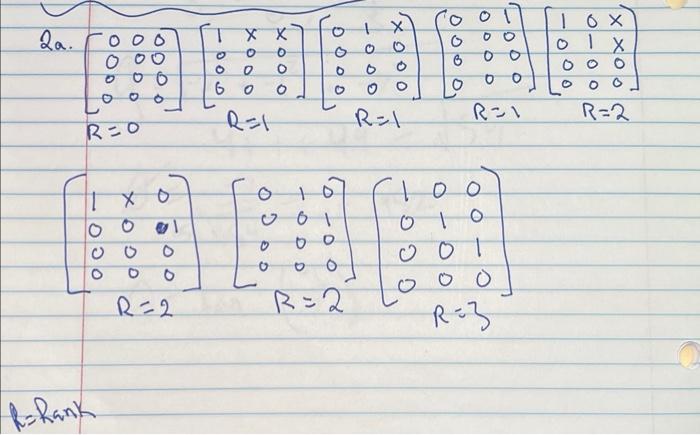 2a. [0 0 0] [1 x x] [0 1 x] [0 0 1] [1 0 x]
[0 0 0] [0 0 0] [0 0 0] [0 0 0] [0 1 x]
[0 0 0] [0 0 0] [0 0 0] [0 0 0] [0 0 0]
[0 0 0] [0 0 0] [0 0 0] [0 0 0] [0 0 0]
R=0 R=1 R=1 R=1 R=2
[1 x 0] [0 1 0] [1 0 0]
[0 0 1] [0 0 1] [0 1 0]
[0 0 0] [0 0 0] [0 0 1]
[0 0 0] [0 0 0] [0 0 0]
R=2 R=2 R=3
R=Rank